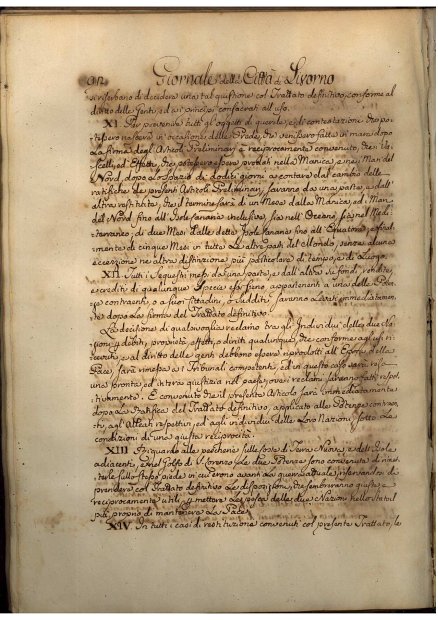 Giornale della Città di Livorno
si riserbano di decidere una tal questione col Trattato definitivo, conforme al
diritto delle Genti, ed ai principj consacrati all'uso.
XI Per prevenire tutti gli oggetti di querele, e di contestazioni che po-
tessero nascere in occasione delle Prede, che venissero fatte in mare dopo
la firma degl'Articoli Preliminari è reciprocamente convenuto, che i Va-
scelli, ed Effetti, che potessero essere predati nella Manica, e nei Mari del
Nord, dopo lo spazio di dodici giorni a contare dal cambio delle
ratifiche de presenti Articoli Preliminari, saranno da una parte, e dall'
altra restituite, che il termine sarà di un Mese dalla Manica, ed i Mari
del Nord fino all'Isole Canarie inclusive, sia nell'Oceano, sia nel Medi-
terraneo, di due Mesi dalle dette Isole Canarie fino all'Equatore, e final-
mente di cinque Mesi in tutte le altre parti del Mondo, senza alcuna
eccezione ne altra distinzione più particolare di tempo, e di Luogo.
XII Tutti i Sequestri messi da una parte, e dall'altra su fondi, rendite,
e crediti di qualunque Specie essi sieno, appartenenti a una delle Po-
tenze contraenti, o a suoi Cittadini, o sudditi saranno levati immediatamen-
te dopo la firma del Trattato definitivo.
La decisione di qualsivoglia reclamo tra gl'Individui delle due Na-
zioni, debiti, proprietà, effetti, o diritti qualunque, che conforme agl'usi ri-
cevuti, e al diritto delle genti debbono essere riprodotti all'Epoca della
Pace, sarà rimessa a i Tribunali competenti, ed in questo caso sarà resa
una pronta ed intera giustizia nel paese, ove i reclami saranno fatti respet-
tivamente. È convenuto che il presente Articolo sarà immediatamente
dopo la Ratifica del Trattato definitivo, applicato alle Potenze contraen-
ti, agl'Alleati respettivi, ed agli individui delle Loro Nazioni, sotto la
condizioni di una giusta reciprocità.
XIII Riguardo alle pescherie sulle Coste di Terra Nuova, e dell'Isole
adiacenti, e nel Golfo di S. Lorenzo le due Potenze sono convenute di rimet-
terle sullo stesso piede in cui erano avanti la guerra attuale, riserbandosi di
prendere col Trattato definitivo le disposizioni, che sembreranno giuste, e
reciprocamente utili, per mettere la pesca delle due Nazioni nello Stato il
più proprio di mantenere la Pace.
XIV In tutti i casi di restituzione convenuti col presente Trattato, le